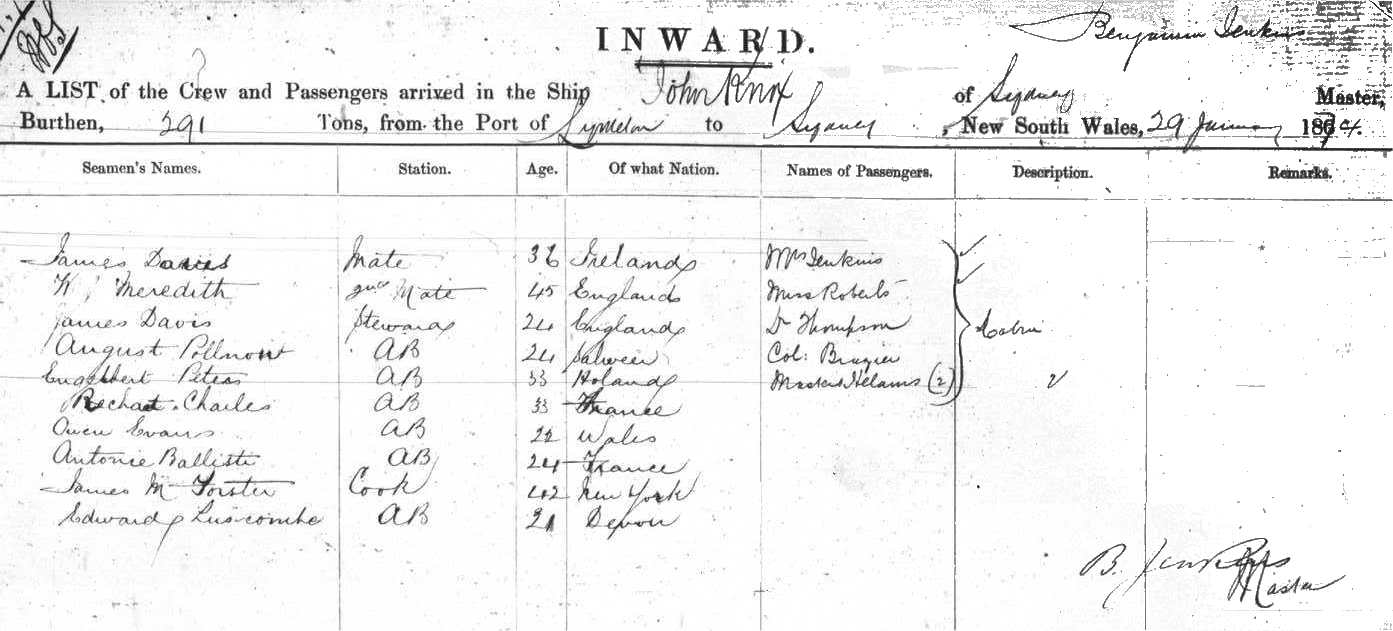 INWARD.
Benjamin Jenkins
A LIST of the Crew and Passengers arrived in the Ship John Knox of Sydney Master,
Burthen, 291 Tons, from the Port of to Sydney, New South Wales, 29 January 1874.
Seamen's Names. Station. Age. Of what Nation. Names of Passengers. Description. Remarks.
James Davies Mate 36 Ireland Mrs Jenkins
W. Meredith 2nd Mate 45 England Miss Roberts
James Davis Steward 24 England Dr Thompson Cabin
August AB 24 Col: Brazier
Engelbert Peters AB 33 Holand (2)
Charles AB 33 France
Owen Evans AB 22 Wales
Antonie Balliste AB 24 France
James M Forster Cook 42 New York
Edward Luscombe AB 21 Devon
B. Jenkins
Master